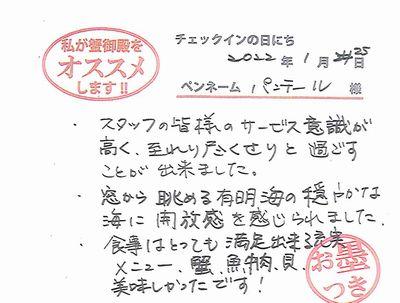 私が蟹御殿を
オススメ
します!!
チェックインの日にち
2022年 1月 25日
ペンネーム パンテール 様
・スタッフの皆様のサービス意識が
高く、至れり尽くせりと過ごす
ことが出来ました。
・窓から眺める有明海の穏やかな
海に開放感を感じられました。
・食事はとっても満足出来る充実
メニュー、蟹、魚、肉、貝、
美味しかったです!
お墨
つき